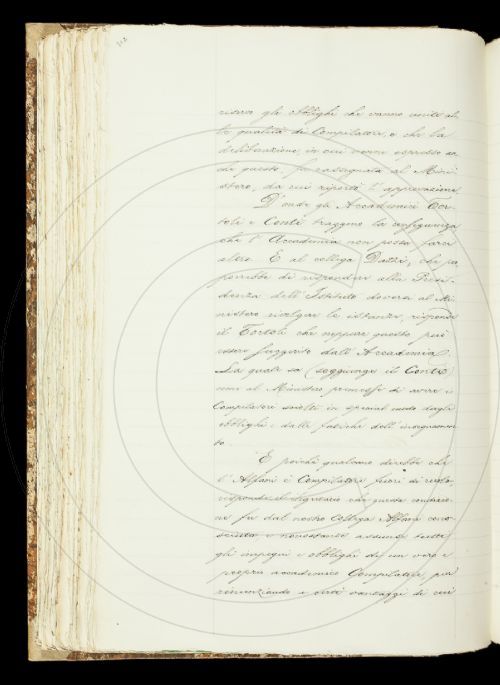 312
riserva gli obblighi che vanno uniti al-
la qualità di Compilatore, e che la
deliberazione, in cui venne espresso
di questo, fu rassegnata al Mini-
stero, da cui riportò l'approvazione.
D'onde gli Accademici Tor-
toli e Conti traggono la conseguenza
che l'Accademia non possa farci
altro. E al collega Dazzi, che
di rispondere alla Presi-
denza dell'Istituto doversi al Mi-
nistero rivolgere le istanze, risponde
il Tortoli che neppure questo può
essere suggerito dall'Accademia.
La quale sa (soggiunge il Conti)
al Ministro premessi di avere i
Compilatori sciolti in special modo dagli
obblighi e dalle fatiche dell'insegnamen-
to.
E poiché qualcuno direbbe che
l'Alfani è Compilatore fuori di ruolo
risponde il Segretario che questa condizio-
ne fu dal nostro Collega Alfani cono-
sciuta e nonostante assunse tutti
gli impegni e obblighi di un vero e
proprio accademico Compilatore, pur
rinunziando a certi vantaggi di cui